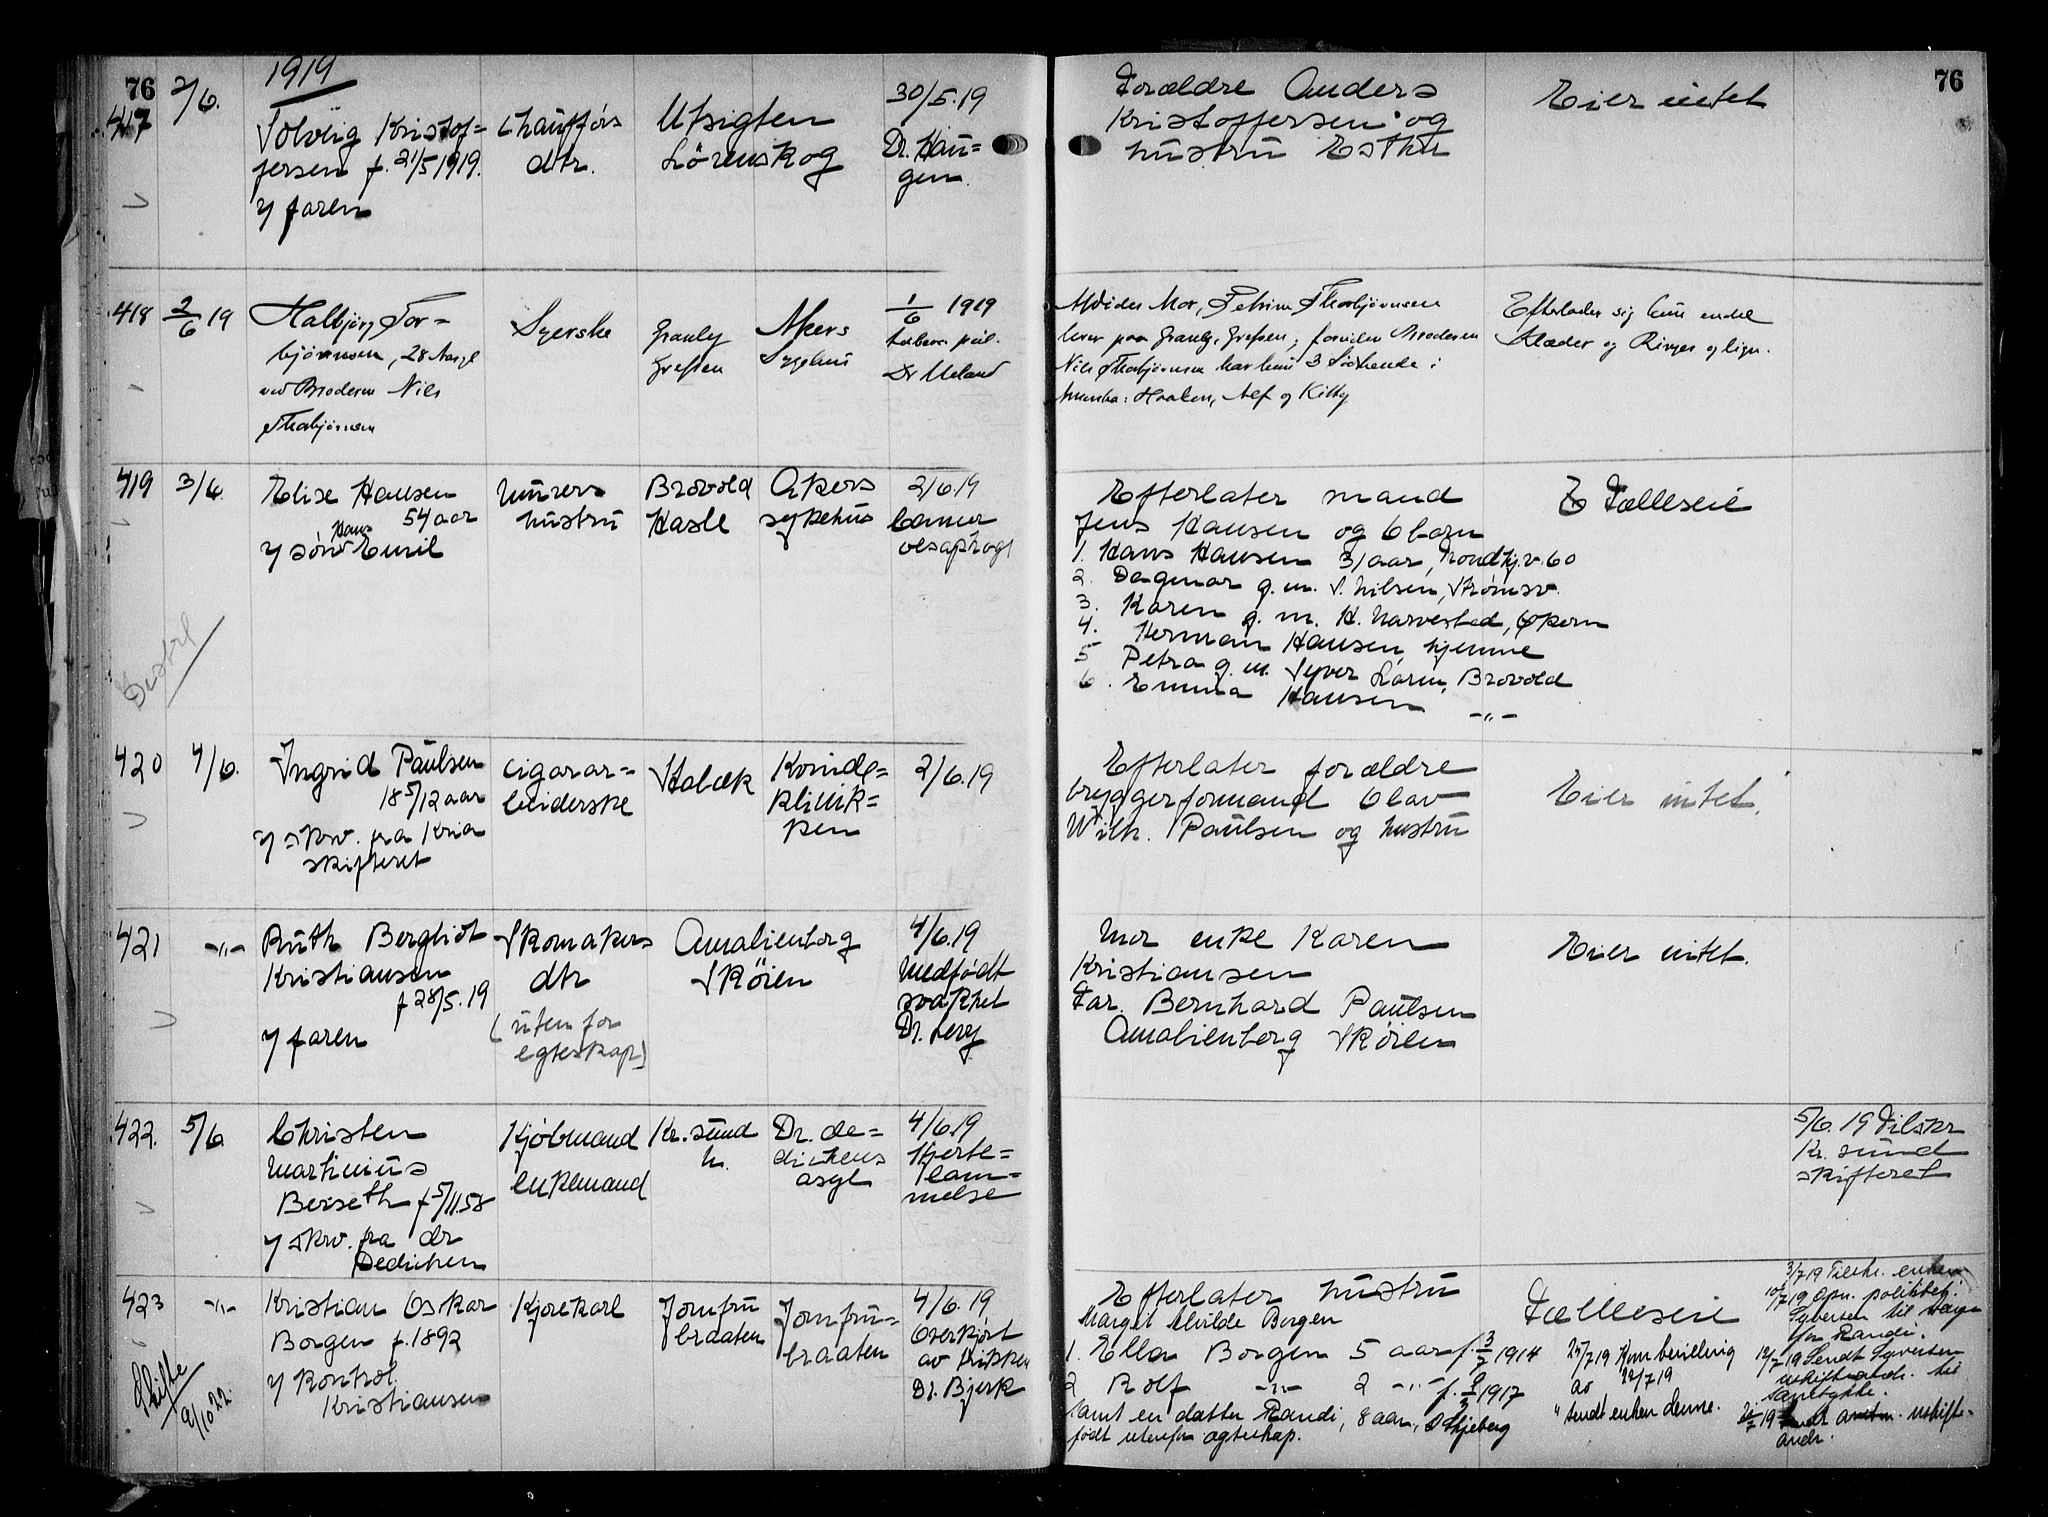 76
1919
417
2/6.
Solveig Kristof=
fersen f. 21/5 1919.
v/ faren
Chaufførs
dtr.
Utsigten
Lörenskog
30/5.19
Dr. Hau=
gen.
Forældre Anders
Kristoffersen og
hustru Esther
Eier intet
76
418
2/6 19
Halbjörg Tor=
björnsen, 28 Aar gl
ved Broderen Nils
Thorbjörnsen
Syerske
Granly
Grefsen
Akers
Sygehus
1/6 1919
Dr Meland
Afdødes Mor, Petrine Thorbjörnsen
lever paa Granly, Grefsen; foruden Broderen
Nils Thorbjörnsen har hun 3 Södskende i
Amerika: Haakon, Alf og Kitty
Efterlader sig kun endel
Klæder og Ringer og lign.
419
3/6.
Elise Hansen
54 aar
v/ sön Hans Emil
Murers
hustru
Brovold
Hasle
Akers
sykehus
2/6.19
Cancer
oesophagi
Efterlater mand
Jens Hansen og 6 barn
1. Hans Hansen 31 aar, Trondhj.v. 60
2. Dagmar g. m. S. Nilsen, Strömsv.
3. Karen g. m. H. Narvestad, Økern
4. Herman Hansen hjemme
5 Petra g. m. Syver Lören, Brovold
6. Emma Hansen -"-
Fælleseie
420
4/6.
Ingrid Paulsen
18 5/12 aar
v/ skrv. fra Kria
skifteret
Cigarar=
beiderske
Stabæk
Kvinde=
klinik=
ken
2/6.19
Efterlater forældre
bryggerformand Olav
Wilh. Paulsen og hustru
Eier intet.
421
-"-
Ruth Bergliot
Kristiansen
f 28/5.19
v/ faren
Skomakers
dtr
(uten for
egteskap)
Amalienborg
Sköien
4/6.19
Medfödt
svakhet
Dr. Levy
Mor enke Karen
Kristiansen
Far. Bernhard Paulsen
Amalienborg Sköien
Eier intet.
422.
5/6.
Christen
Martinius
Berseth f 5/11.58
v/ skrv. fra dr
Dedichen
Kjöbmand
Enkemand
Kr. sund
N.
Dr. De=
dichens
asyl
4/6.19
Hjerte=
lam=
melse
5/6.19 Tilskr
Kr. sund
skifteret
423
-"-
Skifte
9/10 22.
Kristian Oskar
Borgen f. 1892
v/ Kontrol.
Kristiansen
Kjörekarl
Jomfru
braaten
Jomfru=
braaten
4/6.19
Overkjört
av trikken
Dr. Bjerk
Efterlater hustru
Margit Alvilde Borgen
1. Ella Borgen 5 aar f. 3/7 1914
2 Rolf -"- 2 -"- f. 1917
samt en datter Randi, 8 aar, Skjeberg
født utenfor ægteskap.
Fælleseie
25/7 19 Kom bevilling
av 22/7 19
" sendt enken denne.
3/7 19 Tilskr. enken
10/7 19 Opn. politibtj.
Syversen til værge
for Randi.
12/7 19 Sendt Syversen
uskifteandr. til
samtykke.
21/7 19 uskifte-
andr.